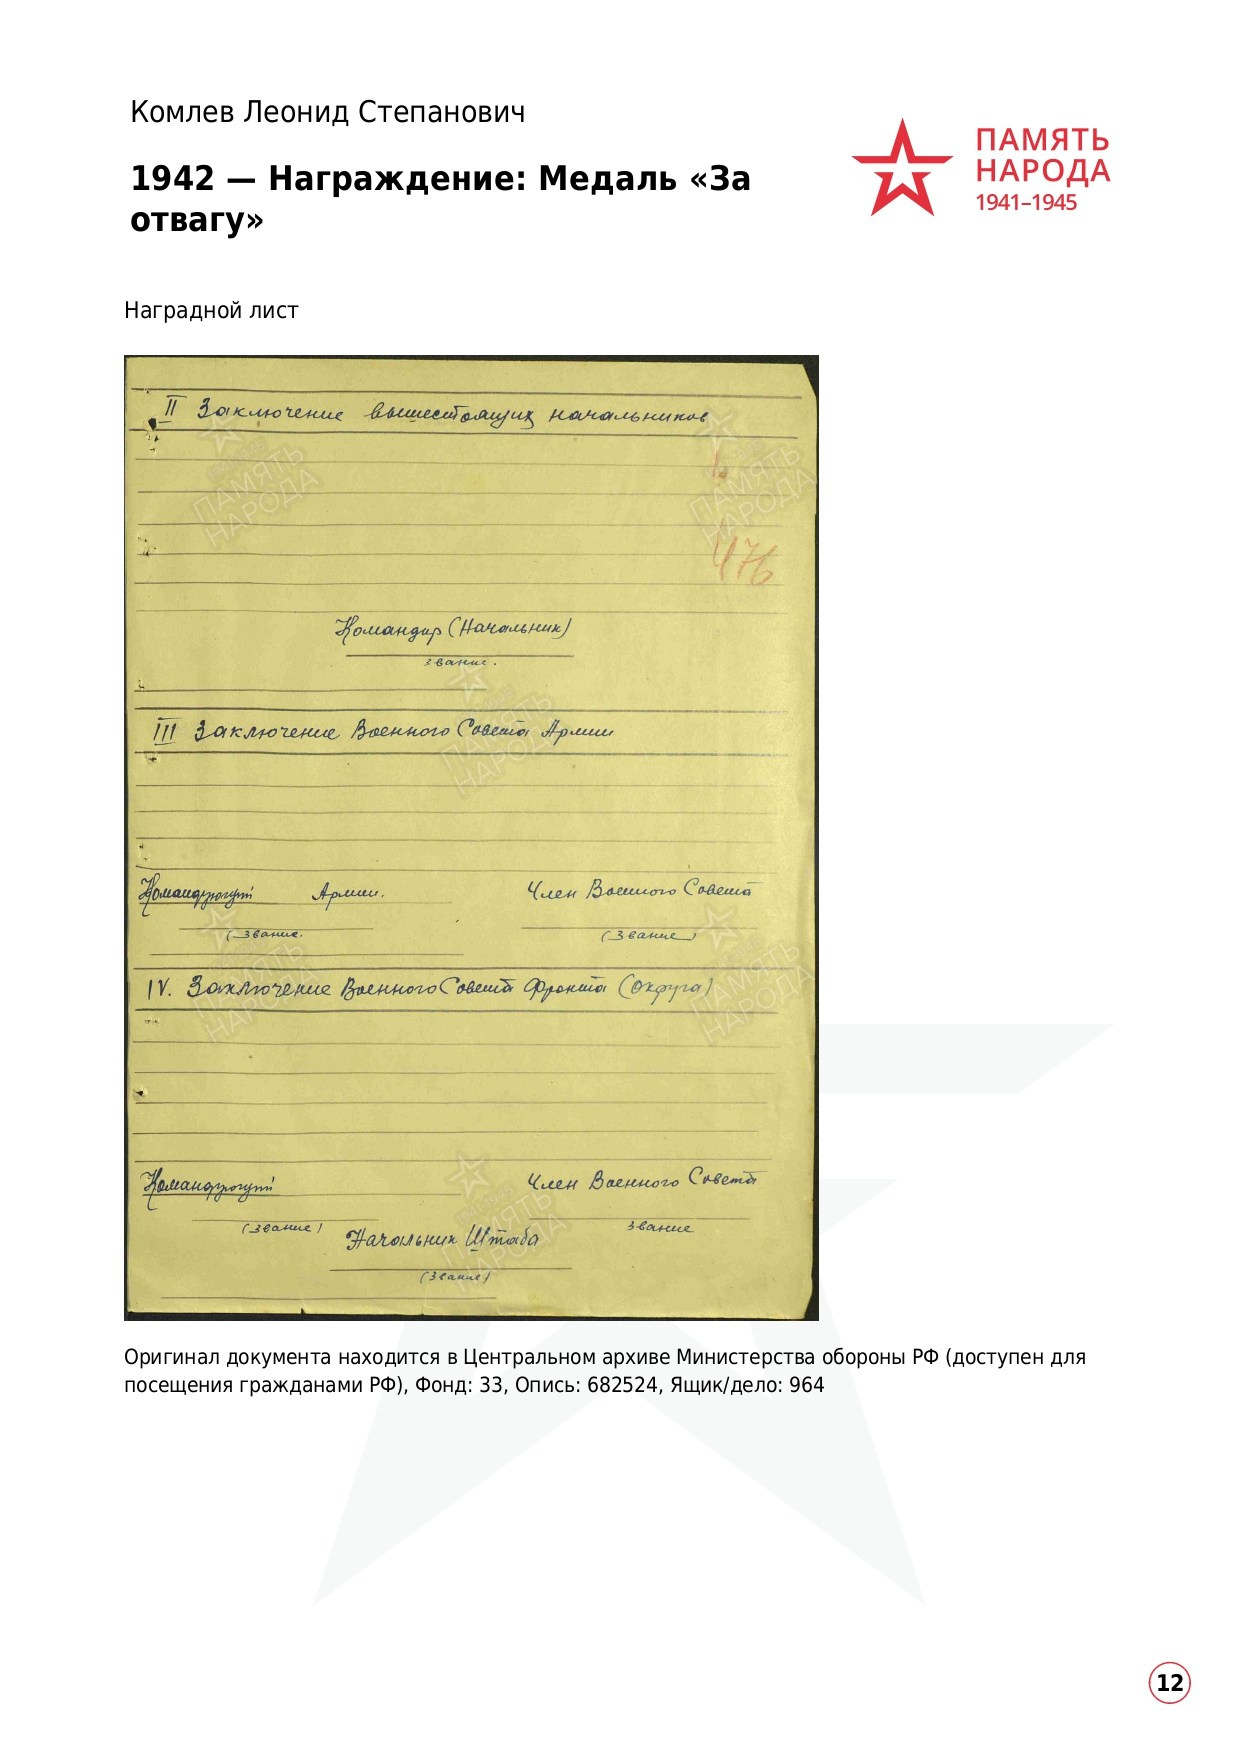 Комлев Леонид Степанович
1942 — Награждение: Медаль «За
отвагу»
ПАМЯТЬ
НАРОДА
1941–1945
Наградной лист
II Заключение вышестоящих начальников
476
Командир (Начальник)
звание.
III Заключение Военного Совета Армии
Командующий Армии. Член Военного Совета
(Звание. (Звание)
IV. Заключение Военного Совета Фронта (Округа)
Командующий Член Военного Совета
(Звание) звание
Начальник Штаба
(Звание)
Оригинал документа находится в Центральном архиве Министерства обороны РФ (доступен для
посещения гражданами РФ), Фонд: 33, Опись: 682524, Ящик/дело: 964
12